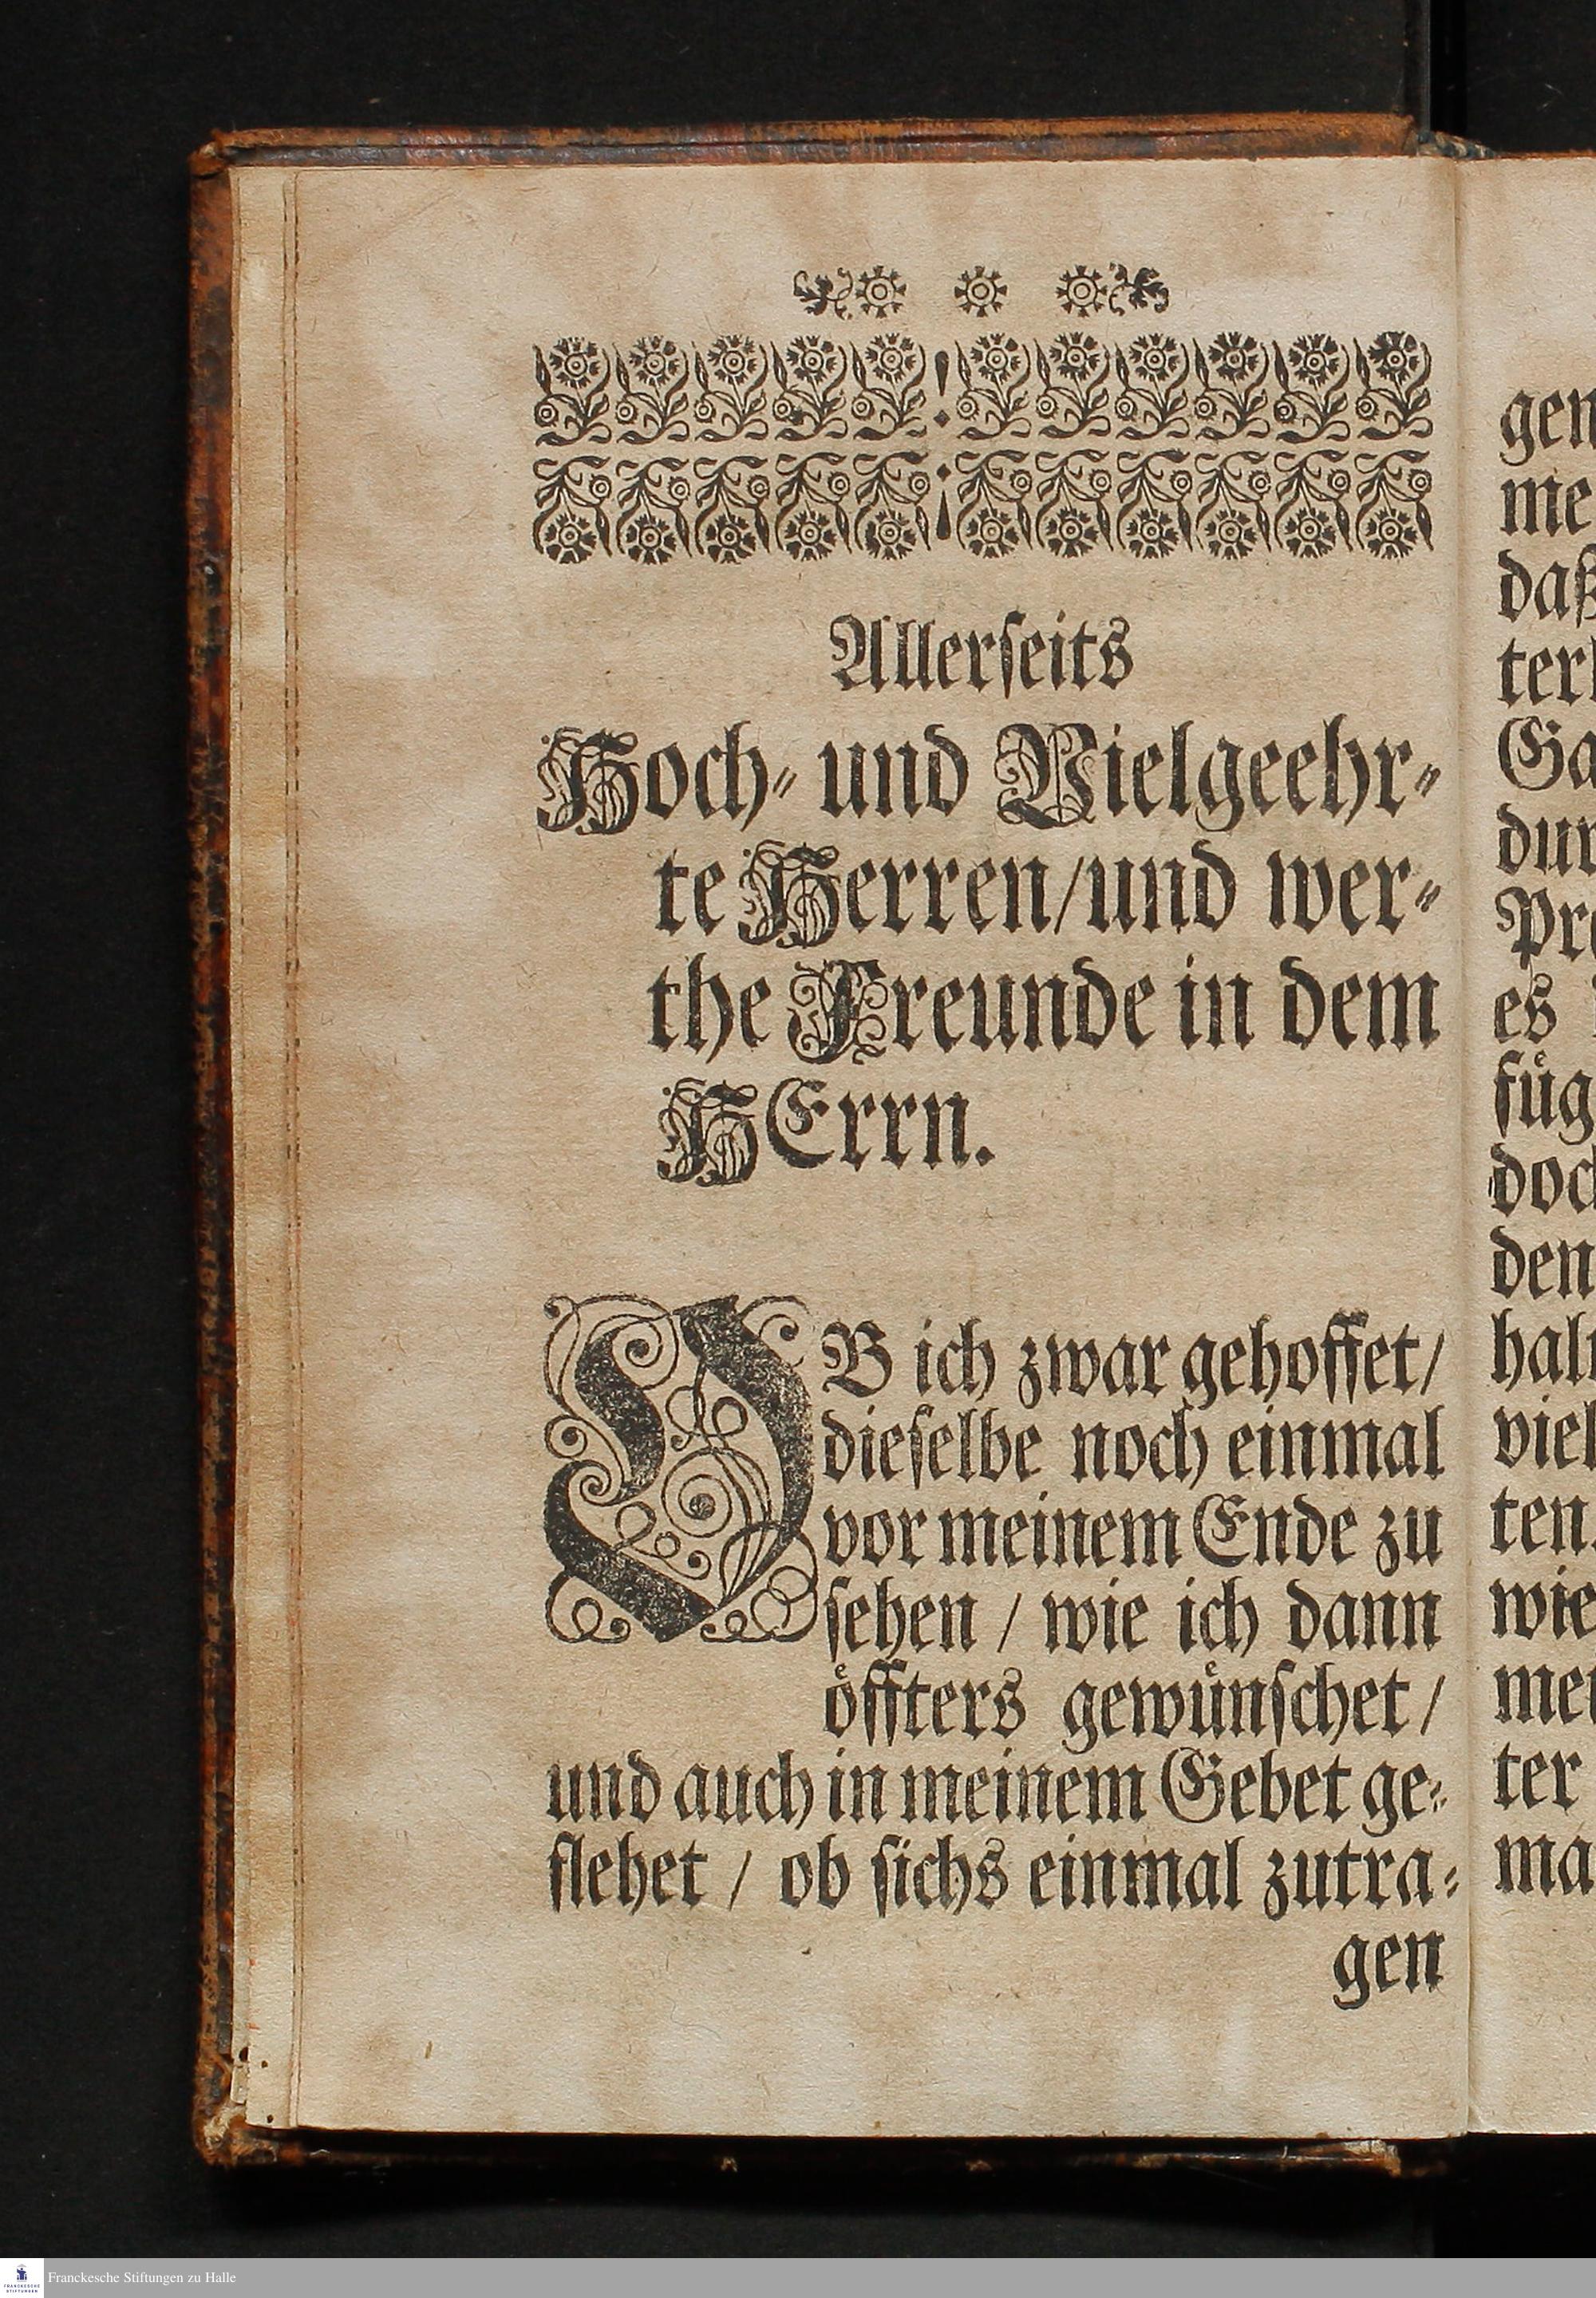 Allerſeits
Hoch- und Vielgeehr-
te Herren/und wer-
the Freunde in dem
HErrn.
OB ich zwar gehoffet/
dieſelbe noch einmal
vor meinem Ende zu
ſehen / wie ich dann
oͤffters gewuͤnſchet /
und auch in meinem Gebet ge-
flehet / ob ſichs einmal zutra-
gen
gen
me
daß
ter
Ga
dur
Pr
es
fuͤg
doc
den
hal
viel
ten
wie
mei
ter
ma
Franckesche Stiftungen zu Halle
FRANCKESCHE
STIFTUNGEN